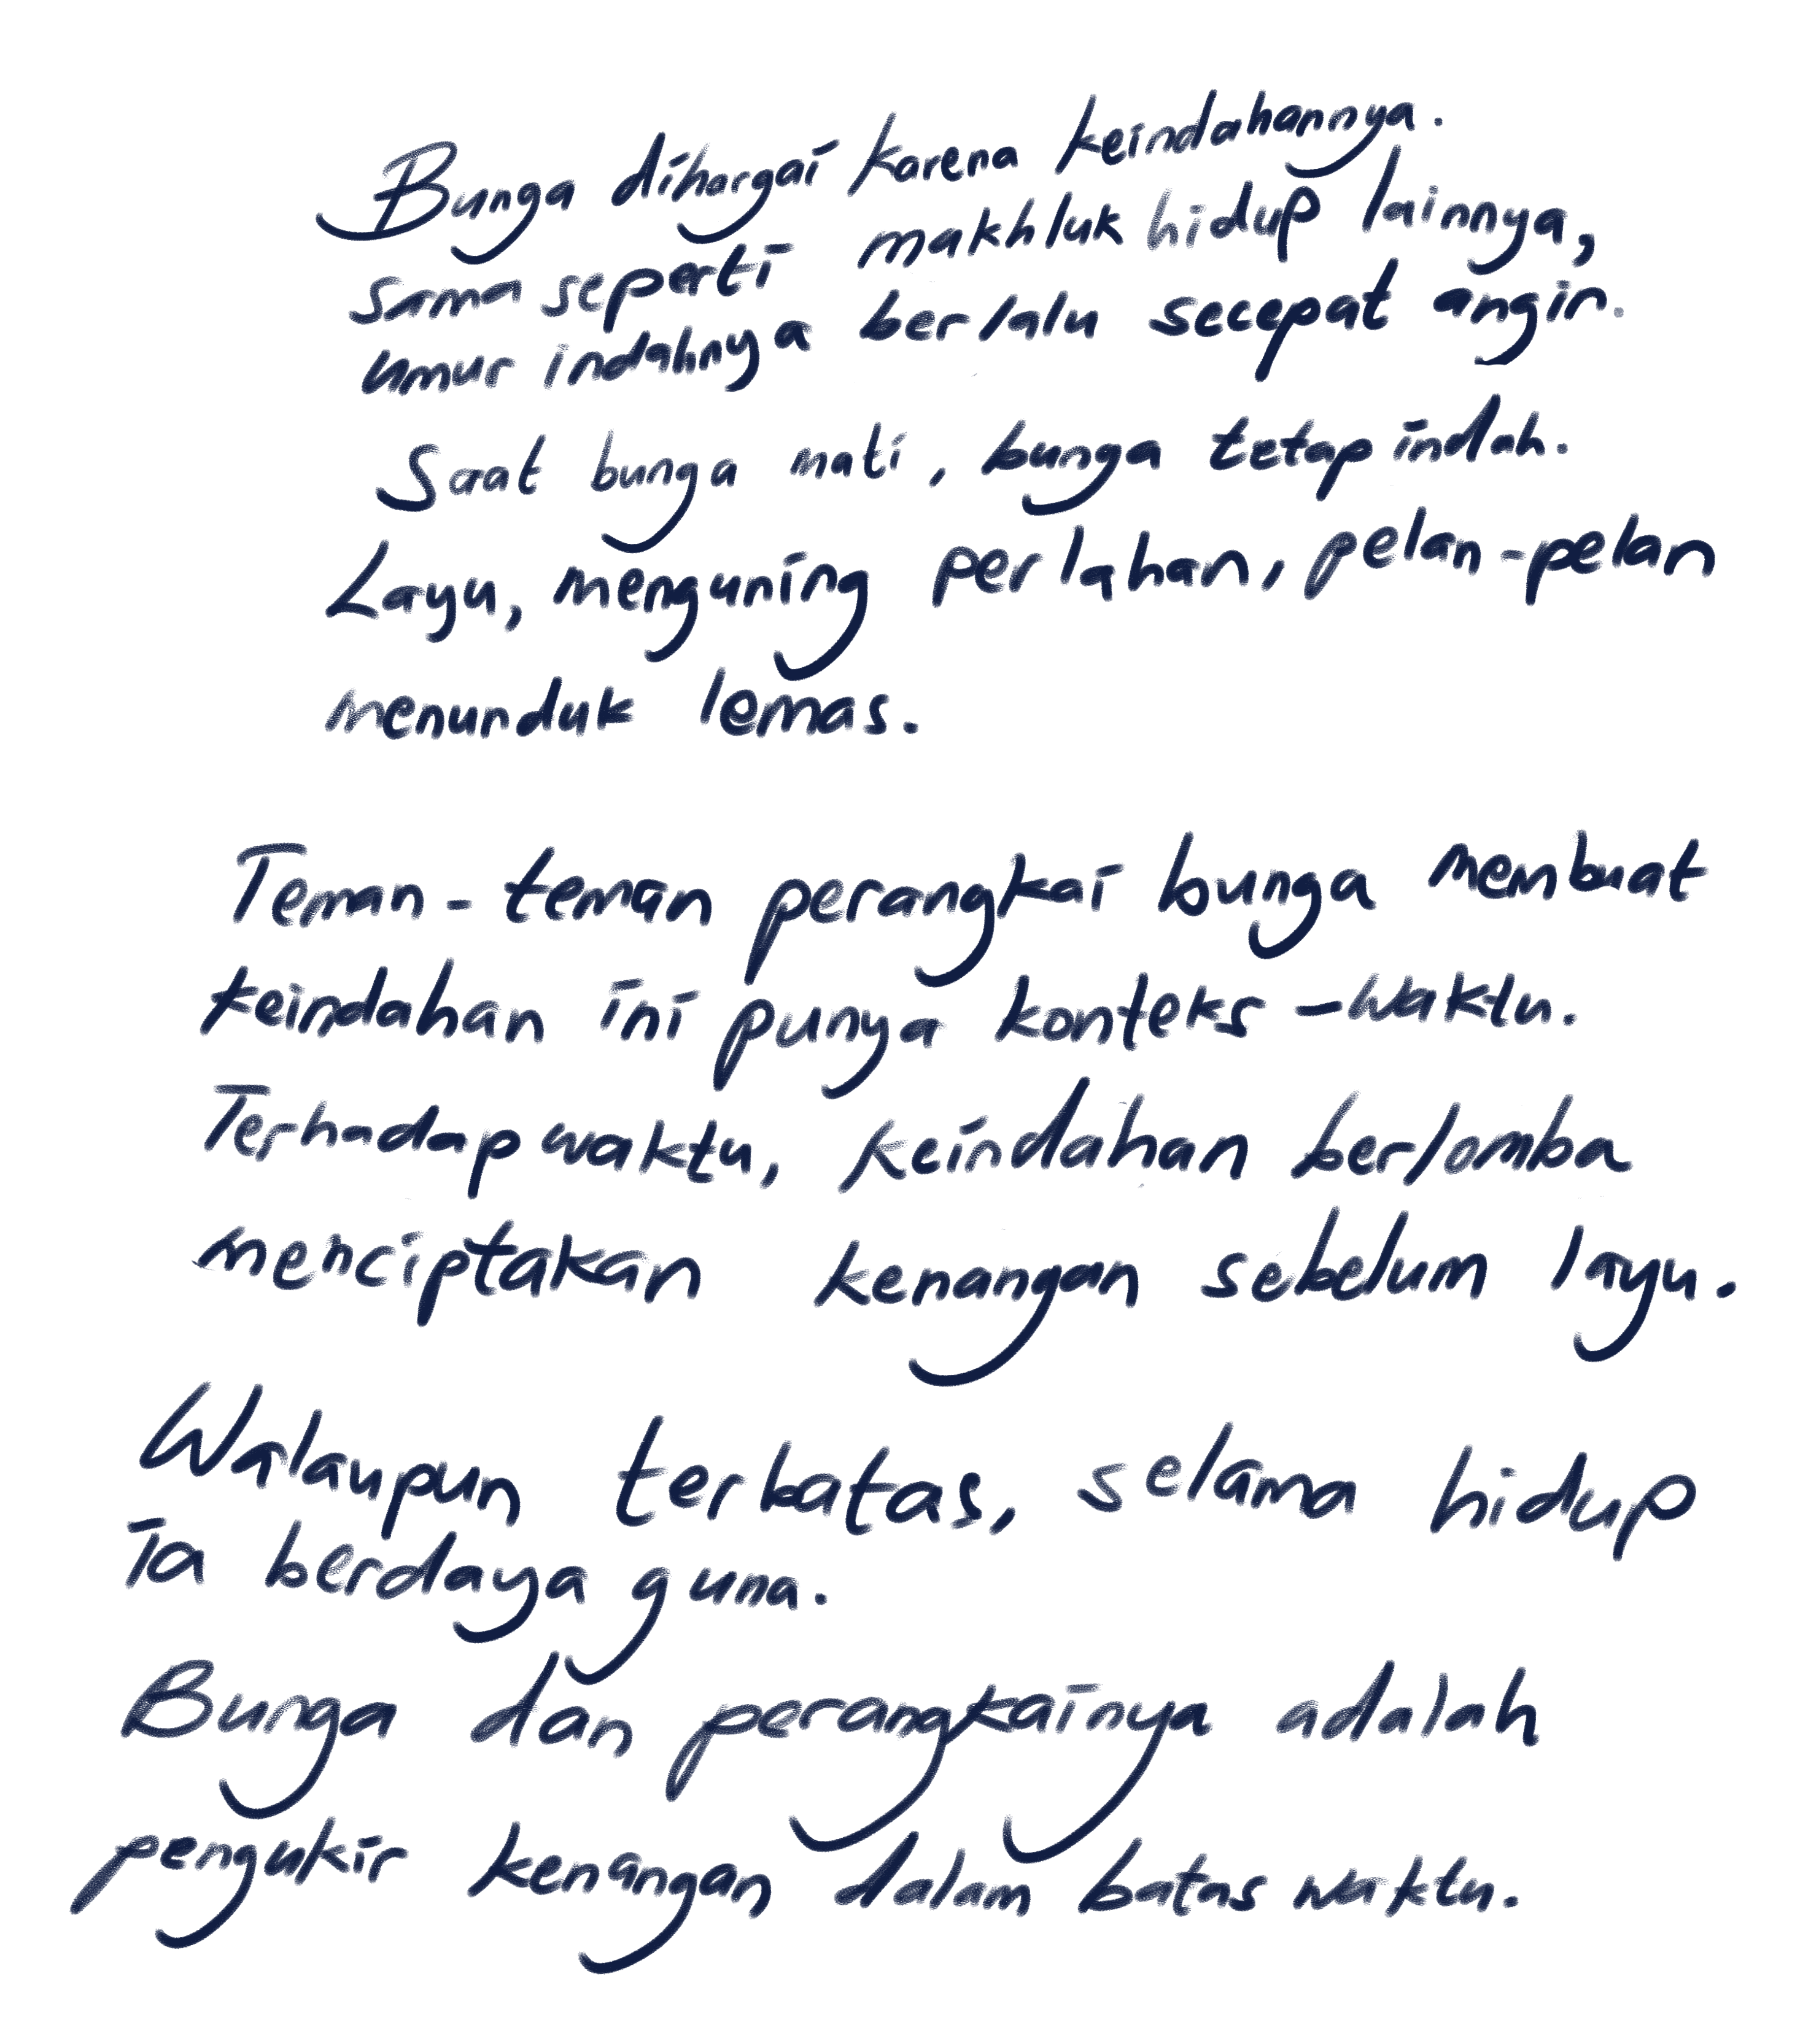 Bunga dihargai karena keindahannya.
Sama seperti makhluk hidup lainnya,
umur indahnya berlalu secepat angin.
Saat bunga mati, bunga tetap indah.
Layu, menguning perlahan, pelan-pelan
menunduk lemas.
Teman-teman perangkai bunga membuat
keindahan ini punya konteks - waktu.
Terhadap waktu, keindahan berlomba
menciptakan kenangan sebelum layu.
Walaupun terbatas, selama hidup
Ia berdaya guna.
Bunga dan perangkainya adalah
pengukir kenangan dalam batas waktu.